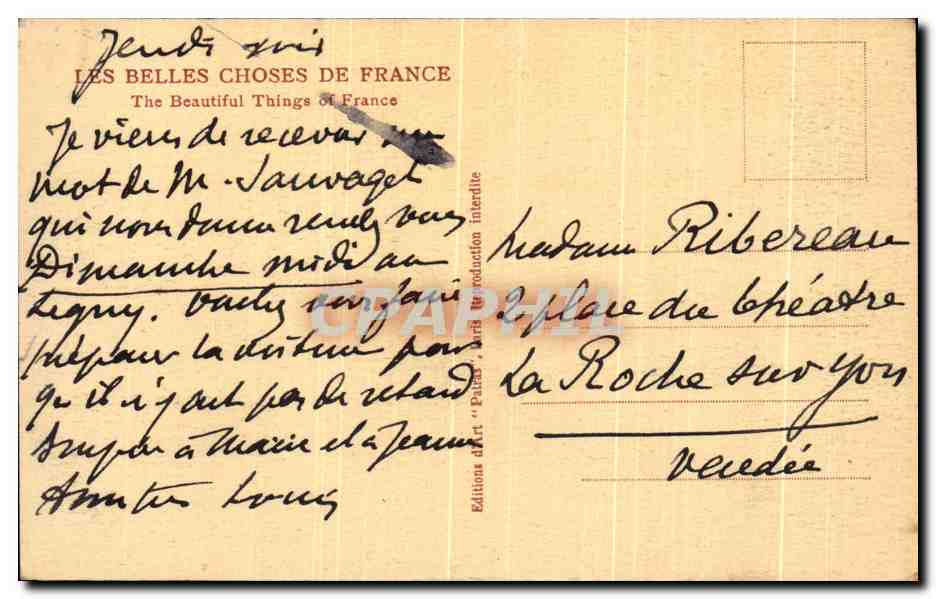 Jeudi soir
LES BELLES CHOSES DE FRANCE
The Beautiful Things of France
Je viens de recevoir un
mot de M. Sauvaget
qui nous donne rendez vous
Dimanche midi au
Legny. faire
préparer la voiture pour
qu'il n'y ait pas de retard
à Marie et à Jeanne
Amitiés Louis
Editions d'Art "Patras", Paris Reproduction interdite
Madame Ribereau
2 place du théatre
La Roche sur Yon
Vendée
CPAPHIL